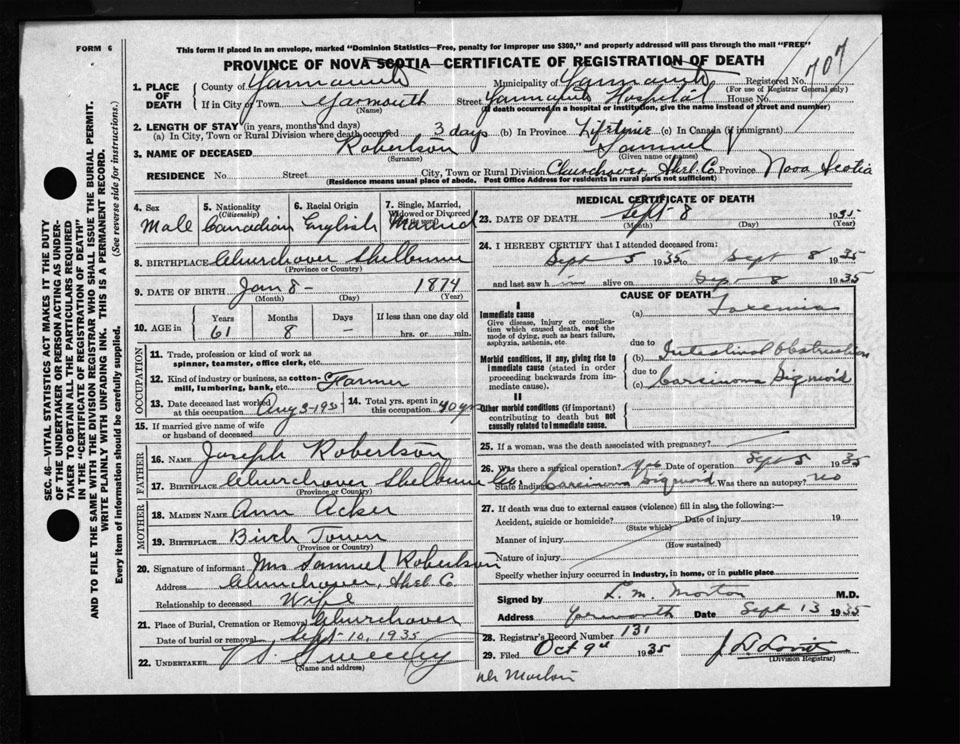 FORM 6
This form if placed in an envelope, marked "Dominion Statistics—Free, penalty for improper use $300," and properly addressed will pass through the mail "FREE"
PROVINCE OF NOVA SCOTIA—CERTIFICATE OF REGISTRATION OF DEATH
707
1. PLACE OF DEATH
County of Yarmouth Municipality of Yarmouth Registered No.
(For use of Registrar General only)
If in City or Town Yarmouth Street Yarmouth Hospital House No.
(Name) (If death occurred in a hospital or institution, give the name instead of street and number)
2. LENGTH OF STAY (in years, months and days)
(a) In City, Town or Rural Division where death occurred 3 days (b) In Province Lifetime (c) In Canada (if immigrant)
3. NAME OF DECEASED Robertson Samuel
(Surname) (Given name or names)
RESIDENCE No. Street City, Town or Rural Division Churchover, Shel. Co. Province Nova Scotia
(Residence means usual place of abode. Post Office Address for residents in rural parts not sufficient)
4. Sex
Male
5. Nationality (Citizenship)
Canadian
6. Racial Origin
English
7. Single, Married, Widowed or Divorced
Married
8. BIRTHPLACE Churchover Shelburne
(Province or Country)
9. DATE OF BIRTH Jan 8 - 1874
(Month) (Day) (Year)
10. AGE in Years Months Days If less than one day old
61 8 - hrs. or min.
OCCUPATION
11. Trade, profession or kind of work as spinner, teamster, office clerk, etc.
12. Kind of industry or business, as cotton-mill, lumbering, bank, etc. Farmer
13. Date deceased last worked at this occupation Aug 3-1935
14. Total yrs. spent in this occupation 40 yrs
15. If married give name of wife or husband of deceased
FATHER
16. NAME Joseph Robertson
17. BIRTHPLACE Churchover Shelburne Co.
(Province or Country)
MOTHER
18. MAIDEN NAME Ann Acker
19. BIRTHPLACE Birch Town
(Province or Country)
20. Signature of informant Mrs Samuel Robertson
Address Churchover, Shel. Co
Relationship to deceased Wife
21. Place of Burial, Cremation or Removal Churchover
Date of burial or removal Sept-10, 1935
22. UNDERTAKER V.S. Sweeney
(Name and address)
MEDICAL CERTIFICATE OF DEATH
23. DATE OF DEATH Sept-8 1935
(Month) (Day) (Year)
24. I HEREBY CERTIFY that I attended deceased from:
Sept 5 1935 to Sept 8 1935
and last saw him alive on Sep 8 1935
CAUSE OF DEATH
I
Immediate cause
Give disease, injury or complication which caused death, not the mode of dying, such as heart failure, asphyxia, asthenia, etc.
(a) Toxemia
due to
Morbid conditions, if any, giving rise to immediate cause (stated in order proceeding backwards from immediate cause).
(b) Intestinal Obstruction
due to
(c) Carcinoma Sigmoid
II
Other morbid conditions (if important) contributing to death but not causally related to immediate cause.
25. If a woman, was the death associated with pregnancy?
26. Was there a surgical operation? Yes Date of operation Sept 5 1935
State finding Carcinoma Sigmoid Was there an autopsy? no
27. If death was due to external causes (violence) fill in also the following:—
Accident, suicide or homicide? Date of injury 19
(State which)
Manner of injury
(How sustained)
Nature of injury
Specify whether injury occurred in industry, in home, or in public place
Signed by L. M. Morton M.D.
Address Yarmouth Date Sept 13 1935
28. Registrar's Record Number 131
29. Filed Oct 9th 1935
(Division Registrar)
SEC. 46—VITAL STATISTICS ACT MAKES IT THE DUTY
OF THE UNDERTAKER OR PERSON ACTING AS UNDER-
TAKER TO OBTAIN ALL THE PARTICULARS REQUIRED
IN THE "CERTIFICATE OF REGISTRATION OF DEATH"
AND TO FILE THE SAME WITH THE DIVISION REGISTRAR WHO SHALL ISSUE THE BURIAL PERMIT.
WRITE PLAINLY WITH UNFADING INK. THIS IS A PERMANENT RECORD.
Every item of information should be carefully supplied. (See reverse side for instructions.)